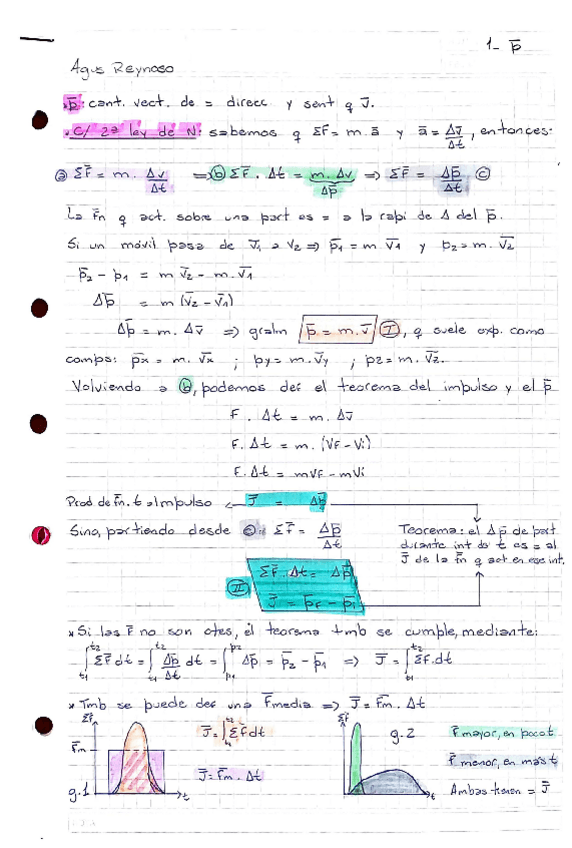 1- p̄
Agus Reynoso
• p̄: cant. vect. de = direcc y sent q J̄.
• C/ 2ª ley de N: sabemos q ΣF̄ = m. ā y ā = Δv̄/Δt, entonces:
ⓐ ΣF̄ = m. Δv/Δt ⇒ ⓑ ΣF̄. Δt = m. Δv (Δp̄) ⇒ ΣF̄ = Δp̄/Δt ⓒ
La F̄n q act. sobre una part es = a la rapi de Δ del p̄.
Si un móvil pasa de v̄1 a v2 ⇒ p̄1 = m v̄1 y p2 = m. v̄2
p̄2 - p̄1 = m v̄2 - m. v̄1
Δp̄ = m (v̄2 - v̄1)
Δp̄ = m. Δv̄ ⇒ gralm p̄ = m. v̄ Ⓘ, q suele exp. como
comps: p̄x = m. v̄x ; py = m. v̄y ; pz = m. v̄z.
Volviendo a ⓑ, podemos def el teorema del impulso y el p̄
F . Δt = m. Δv̄
F. Δt = m. (VF - Vi)
F. Δt = mVF - mVi
Prod de F̄n. t = Impulso ← J̄ = Δp̄
Sino, partiendo desde ⓒ: ΣF̄ = Δp̄/Δt
Teorema: el Δp̄ de part
durante int de t es = al
J̄ de la F̄n q act en ese int.
Ⓘ̄Ⓘ ΣF̄. Δt = Δp̄
J̄ = p̄F - p̄i
* Si las F̄ no son ctes, el teorema tmb se cumple, mediante:
∫t1t2 ΣF̄ dt = ∫t1t2 Δp̄/Δt dt = ∫p1p2 Δp̄ = p̄2 - p̄1 ⇒ J̄ = ∫t1t2 ΣF. dt
* Tmb se puede def una F̄media ⇒ J̄ = F̄m. Δt
ΣF̄
F̄m
g.1
t
J̄ = ∫t1t2 ΣF̄dt
J̄ = F̄m. Δt
ΣF̄
g.2
t
F̄ mayor, en poco t
F̄ menor, en más t
Ambas tienen = J̄